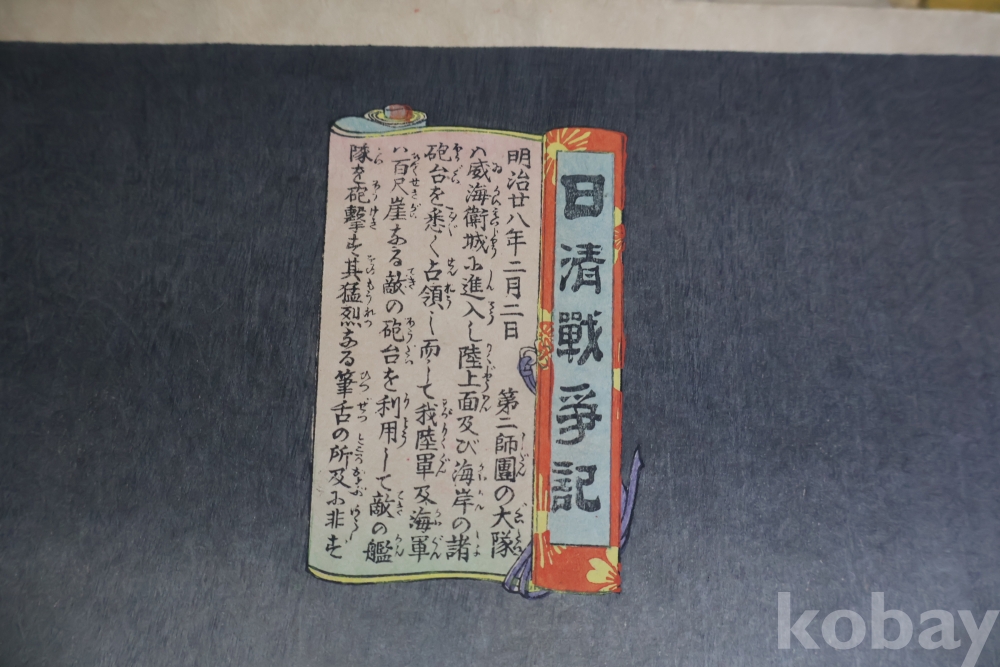 日清戰爭記
明治廿八年二月二日 第二師團の大隊
ハ威海衛城に進入し陸上面及び海岸の諸
砲台を悉く占領し而して我陸軍及海軍
ハ百尺崖なる敵の砲台を利用して敵の艦
隊を砲撃す其猛烈なる筆舌の所及に非ず
kobay